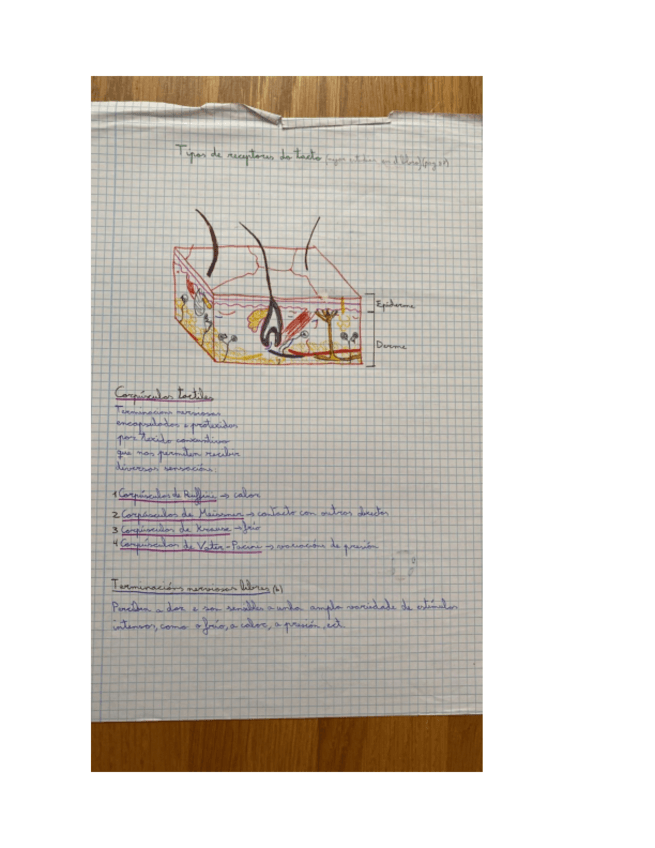 Tipos de receptores do tacto
Epiderme
Derme
Corpúsculos tactiles
Terminacións nerviosas
encapsuladas e protexidas
por texido conxuntivo
que nos permiten recibir
diversas sensacións:
1 Corpúsculos de Ruffini → calor
2 Corpúsculos de Meissner → contacto con outros
3 Corpúsculos de Krause → frío
4 Corpúsculos de Vater-Pacini → variacións de presión
Terminacións nerviosas libres (6)
Perciben a dor e son sensibles a unha ampla variedade de estímulos
intensos, como o frío, a calor, a presión, ect.